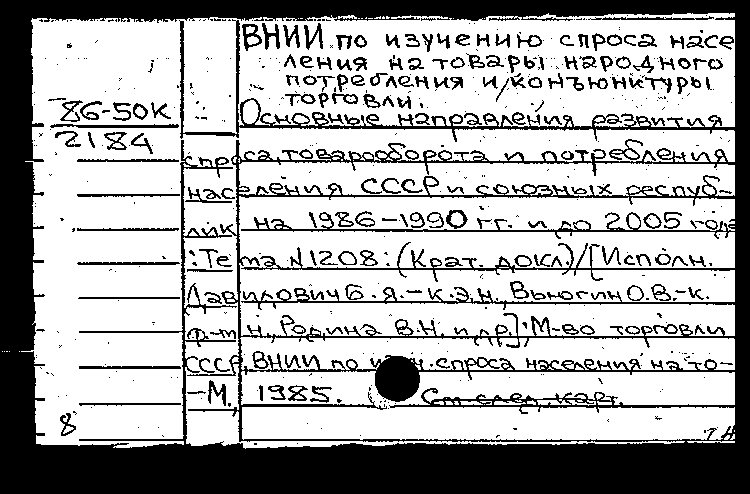 ВНИИ по изучению спроса насе
ления на товары народного
потребления и конъюнктуры
торговли.
86-50К
Основные направления развития
2184
спроса, товарооборота и потребления
населения СССР и союзных респуб-
лик на 1986-1990 гг. и до 2005 года
: Тема №1208: (Крат. докл)/[Исполн.
Давидович Б.Я.-к.э.н., Вьюгин О.В.-к.
ф.-м н., Родина В.Н. и др.]; М-во торговли
СССР, ВНИИ по изуч. спроса населения на то-
-М., 1985. См след. карт.
8